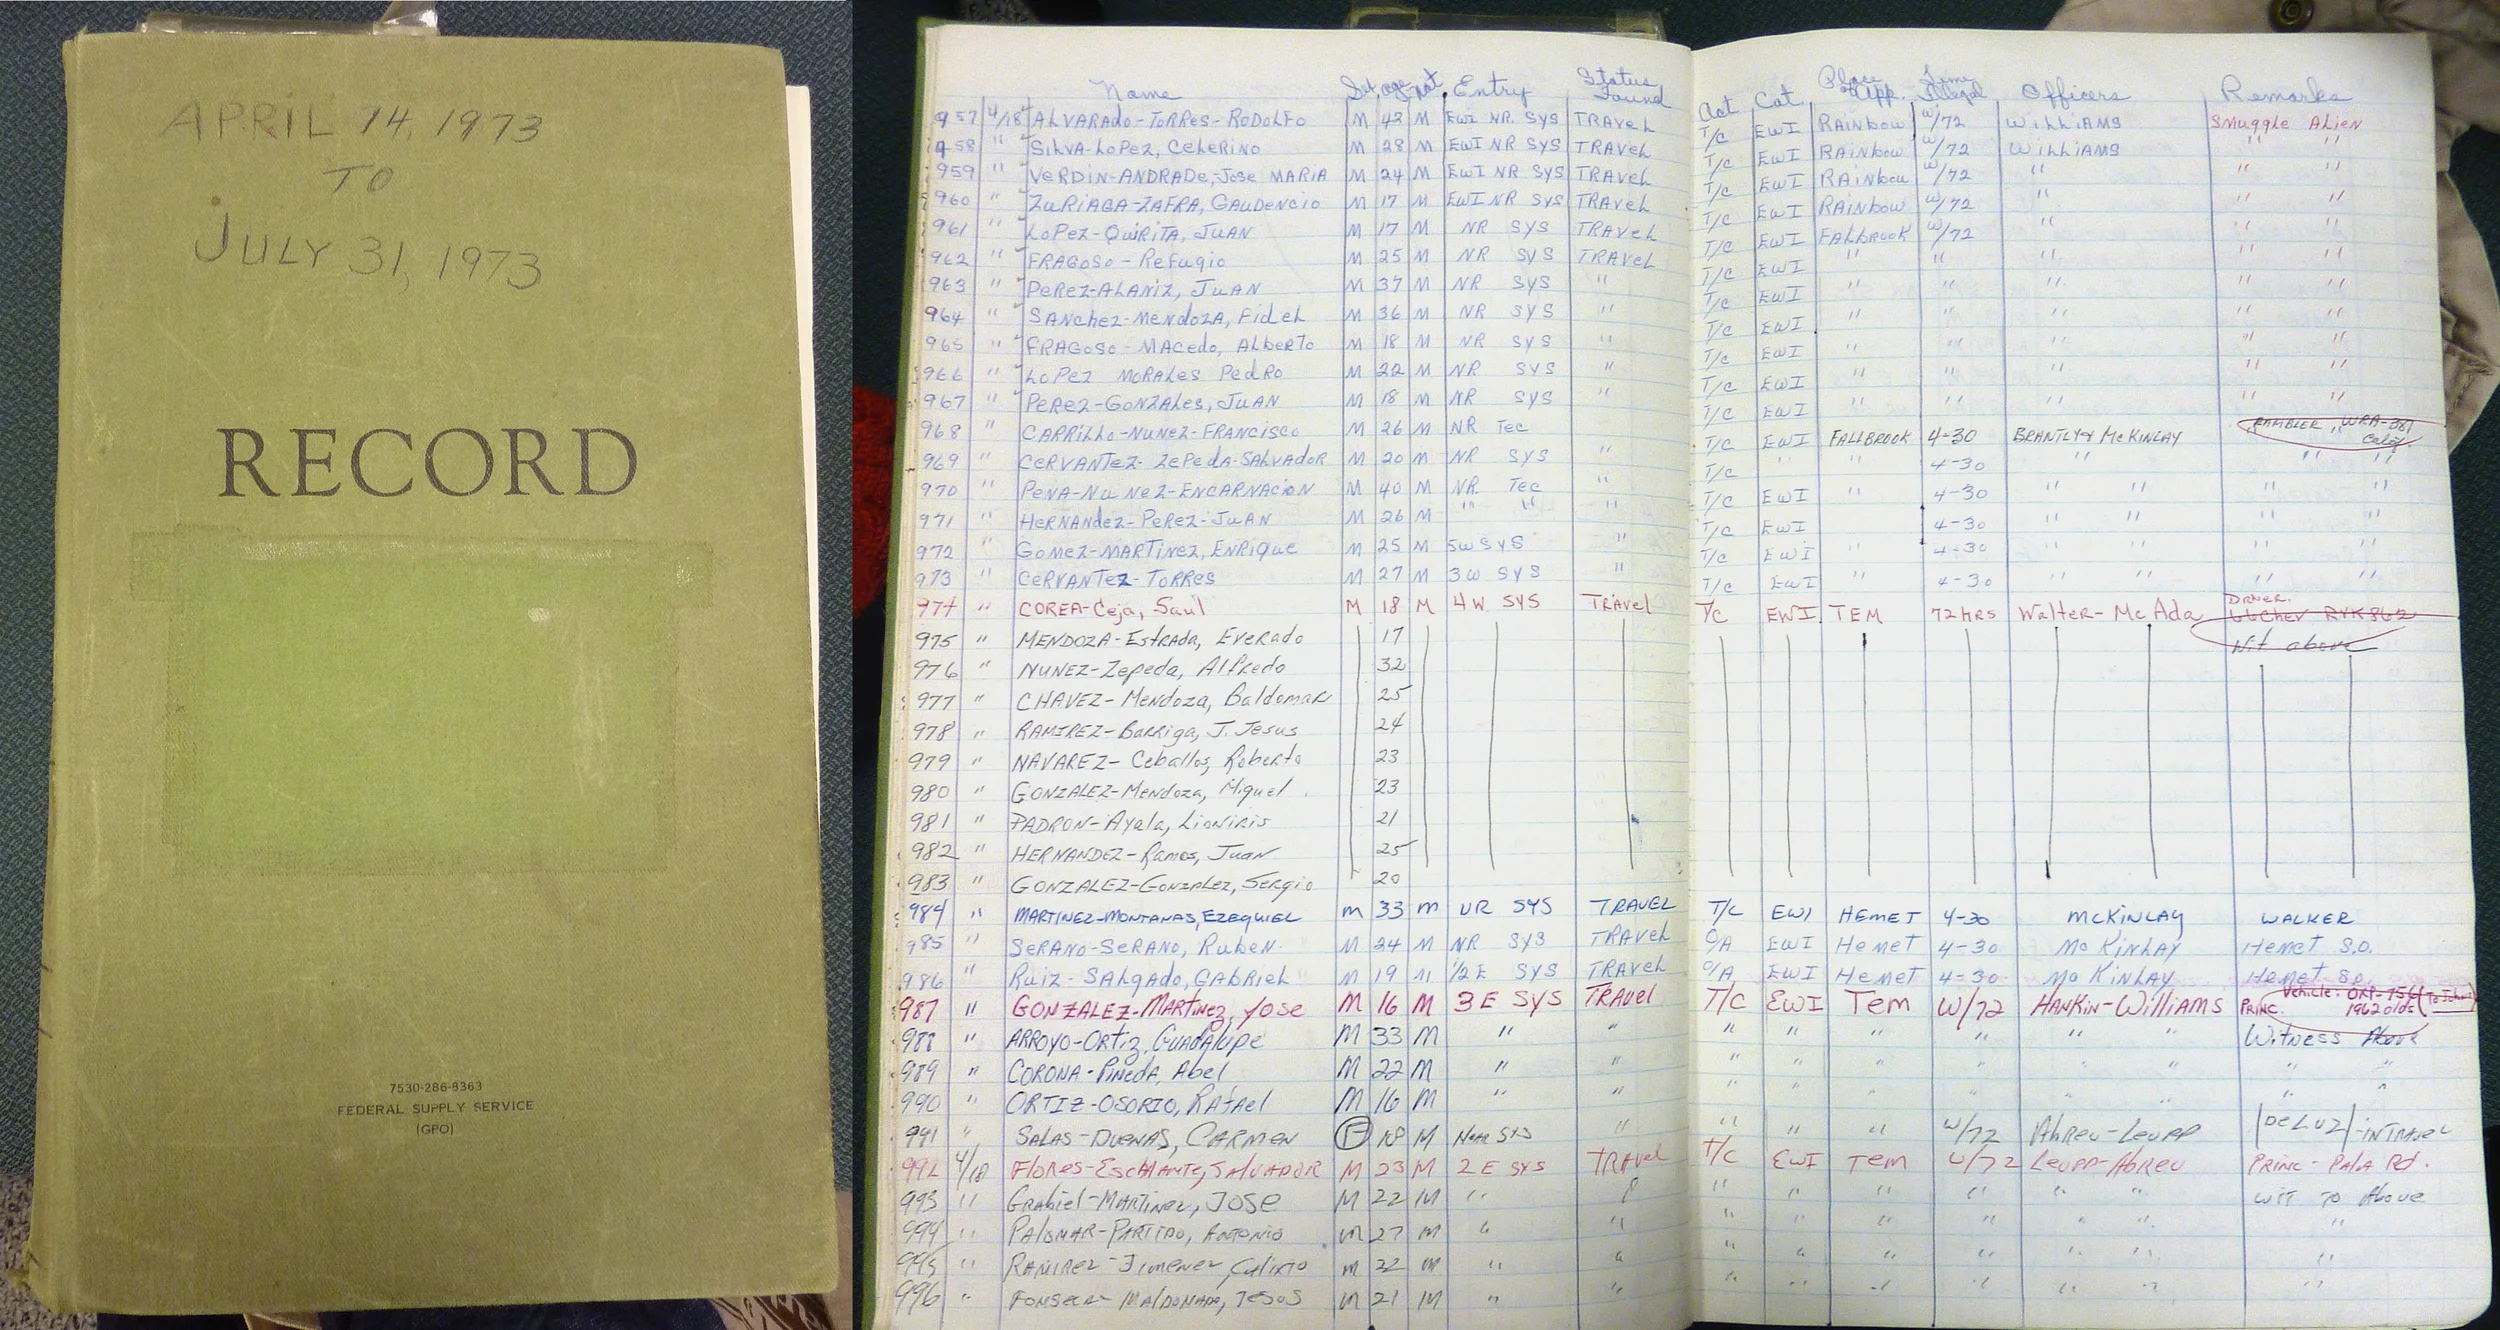 APRIL 14, 1973
TO
JULY 31, 1973
RECORD
7530-286-8363
FEDERAL SUPPLY SERVICE
(GPO)
Name Sex age nat. Entry Status Found Act Cat. Place of App. Time Illegal Officers Remarks
957 4/18 ALVARADO-TORRES-RODOLFO M 42 M EWI NR. SYS TRAVEL T/C EWI RAINBOW W/72 WILLIAMS SMUGGLE ALIEN
958 " SILVA-LOPEZ, CELERINO M 28 M EWI NR SYS TRAVEL T/C EWI RAINBOW W/72 WILLIAMS " "
959 " VERDIN-ANDRADE, JOSE MARIA M 24 M EWI NR SYS TRAVEL T/C EWI RAINBOW W/72 " " "
960 " ZURIAGA-ZAFRA, GAUDENCIO M 17 M EWI NR SYS TRAVEL T/C EWI RAINBOW W/72 " " "
961 " LOPEZ-QUIRITA, JUAN M 17 M NR SYS TRAVEL T/C EWI FALBROOK W/72 " " "
962 " FRAGOSO-REFUGIO M 25 M NR SYS TRAVEL T/C EWI " " " " "
963 " PEREZ-ALANIZ, JUAN M 37 M NR SYS " T/C EWI " " " " "
964 " SANCHEZ-MENDOZA, FIDEL M 36 M NR SYS " T/C EWI " " " " "
965 " FRAGOSO-MACEDO, ALBERTO M 18 M NR SYS " T/C EWI " " " " "
966 " LOPEZ MORALES PEDRO M 22 M NR SYS " T/C EWI " " " " "
967 " PEREZ-GONZALES, JUAN M 18 M NR SYS T/C EWI " " " " "
968 " CARRILLO-NUNEZ-FRANCISCO M 26 M NR TEC T/C EWI FALLBROOK 4-30 BRANTLY & McKINLAY RAMBLER, WRA-381 Calif
969 " CERVANTEZ-ZEPEDA-SALVADOR M 20 M NR SYS " T/C " " 4-30 " " "
970 " PENA-NUNEZ-ENCARNACION M 40 M NR. TEC " T/C EWI " 4-30 " " " "
971 " HERNANDEZ-PEREZ-JUAN M 26 M " " " T/C EWI " 4-30 " " " "
972 " GOMEZ-MARTINEZ, ENRIQUE M 25 M 5W SYS " T/C EWI " 4-30 " " " "
973 " CERVANTEZ-TORRES M 27 M 3W SYS " T/C EWI " 4-30 " " " "
974 " COREA-Ceja, Saul M 18 M 4W SYS TRAVEL T/C EWI. TEM 72 HRS Walter-McAda Driver.
975 " MENDOZA-Estrada, Everado 17 Wit above
976 " NUNEZ-Zepeda, Alfredo 32
977 " CHAVEZ-Mendoza, Baldomar 25
978 " RAMIREZ-Barriga, J. Jesus 24
979 " NAVAREZ-Ceballos, Roberto 23
980 " GONZALEZ-Mendoza, Miguel 23
981 " PADRON-Ayala, 21
982 " HERNANDEZ-Ramos, Juan 25
983 " GONZALEZ-Gonzalez, Sergio 20
984 " MARTINEZ-MONTANAS, EZEQUIEL M 33 M UR SYS TRAVEL T/C EWI HEMET 4-30 McKINLAY WALKER
985 " SERANO-SERANO, RUBEN. M 24 M NR SYS TRAVEL O/A EWI HEMET 4-30 McKINLAY HEMET S.O.
986 " RUIZ-SALGADO, GABRIEL M 19 M 1/2 E SYS TRAVEL O/A EWI HEMET 4-30 McKINLAY HEMET S.O.
987 " GONZALEZ-MARTINEZ, JOSE M 16 M 3 E SYS TRAVEL T/C EWI TEM W/72 HANKIN-WILLIAMS PRINC. Vehicle: 1962 Olds
988 " ARROYO-ORTIZ, GUADALUPE M 33 M " " " " " " " " Witness Above
989 " CORONA-PINEDA, Abel M 22 M " " " " " " " " " "
990 " ORTIZ-OSORIO, RAFAEL M 16 M " " " " " " " " " "
991 " SALAS-DUENAS, CARMEN F 18 M Near SYS " " " " W/72 Abreu-Leupp DeLUZ-INTRAVEL
992 4/18 FLORES-ESCALANTE, SALVADOR M 23 M 2 E SYS TRAVEL T/C EWI TEM W/72 LEUPP-ABREU PRINC-PALA Rd.
993 " GRABIEL-MARTINEZ, JOSE M 22 M " " " " " " " " WIT TO Above
994 " PALOMAR-PARTIDO, ANTONIO M 27 M " " " " " " " " "
995 " RAMIREZ-JIMENEZ, CALIXTO M 22 M " " " " " " " " "
996 " FONSECA-MALDONADO, JESUS M 21 M " " " " " " " " "